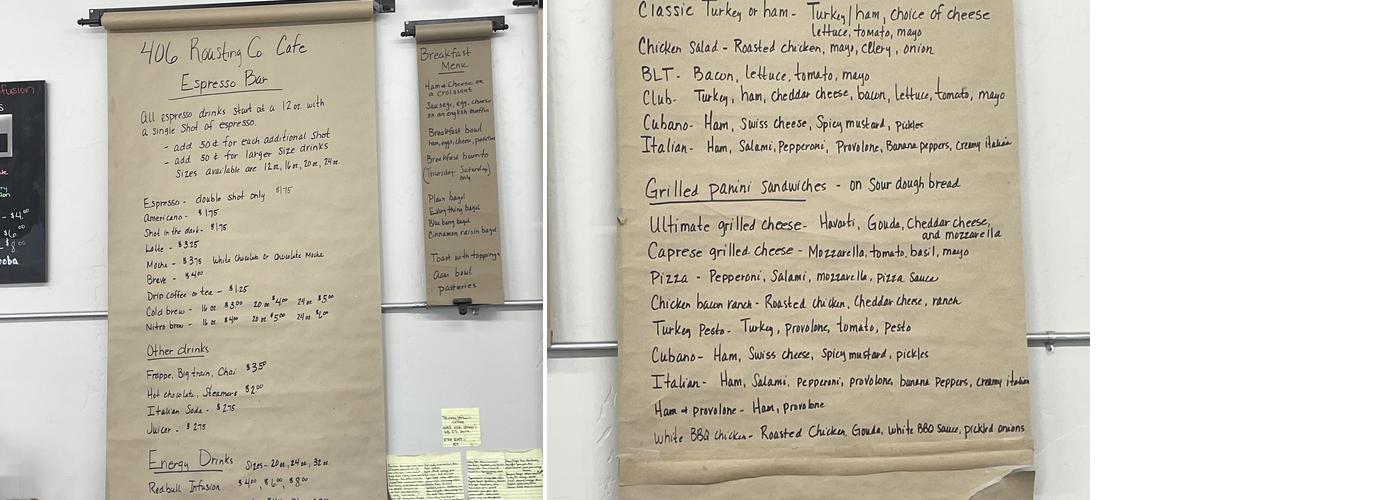 406 Roasting Co Cafe
Espresso Bar
All espresso drinks start at a 12oz with
a single shot of espresso.
- add 50¢ for each additional shot
- add 50¢ for larger size drinks
Sizes available are 12oz, 16oz, 20oz, 24oz
Espresso - double shot only $1.75
Americano - $1.75
Shot in the dark - $1.75
Latte - $3.25
Mocha - $3.75 White Chocolate or Chocolate Mocha
Breve - $4.00
Drip coffee or tea - $1.25
Cold brew - 16oz $3.00 20oz $4.00 24oz $5.00
Nitro brew - 16oz $4.00 20oz $5.00 24oz $6.00
Other drinks
Frappe, Big train, Chai $3.50
Hot chocolate, Steamers $2.00
Italian Soda - $2.75
Juicer - $2.75
Energy Drinks Sizes - 20oz, 24oz, 32oz
Redbull Infusion $4.00, $6.00, $8.00
Breakfast
Menu
Ham & Cheese on
a croissant
Sausage, egg, cheese
on an english muffin
Breakfast bowl
ham, eggs, cheese, potatoes
Breakfast burrito
(Thursday - Saturday)
only
Plain bagel
Everything bagel
Blueberry bagel
Cinnamon raisin bagel
Toast with toppings
Acai bowl
pastries
Classic Turkey or ham - Turkey/ham, choice of cheese
lettuce, tomato, mayo
Chicken Salad - Roasted chicken, mayo, cellery, onion
BLT - Bacon, lettuce, tomato, mayo
Club - Turkey, ham, cheddar cheese, bacon, lettuce, tomato, mayo
Cubano - Ham, Swiss cheese, Spicy mustard, pickles
Italian - Ham, Salami, Pepperoni, Provolone, Banana peppers, Creamy italian
Grilled panini sandwiches - on Sour dough bread
Ultimate grilled cheese - Havarti, Gouda, Cheddar cheese,
and mozzarella
Caprese grilled cheese - Mozzarella, tomato, basil, mayo
Pizza - Pepperoni, Salami, mozzarella, pizza sauce
Chicken bacon ranch - Roasted chicken, Cheddar cheese, ranch
Turkey Pesto - Turkey, provolone, tomato, pesto
Cubano - Ham, Swiss cheese, Spicy mustard, pickles
Italian - Ham, Salami, Pepperoni, provolone, banana Peppers, Creamy italian
Ham & provolone - Ham, provolone
White BBQ chicken - Roasted Chicken, Gouda, white BBQ Sauce, pickled onions